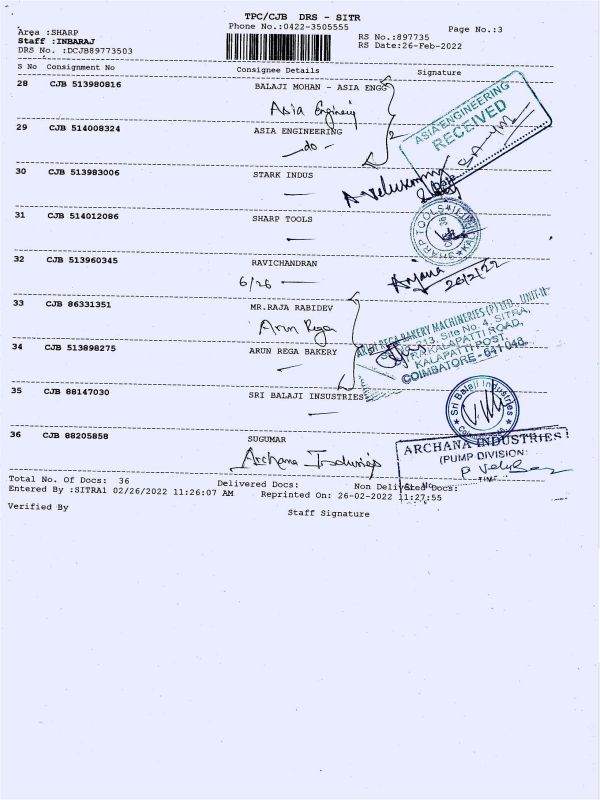 TPC/CJB DRS - SITR
Phone No.:0422-3505555
Page No.:3
Area :SHARP
Staff :INBARAJ
DRS No. :DCJB89773503
RS No.:897735
RS Date:26-Feb-2022
S No Consignment No Consignee Details Signature
28 CJB 513980816 BALAJI MOHAN - ASIA ENGG
Asia Engineering
ASIA ENGINEERING
RECEIVED
29 CJB 514008324 ASIA ENGINEERING
-do-
2
30 CJB 513983006 STARK INDUS
31 CJB 514012086 SHARP TOOLS
SHARP TOOLS
32 CJB 513960345 RAVICHANDRAN
6/26
Anjana
26/2/22
33 CJB 86331351 MR.RAJA RABIDEV
Arun Rega
REGA BAKERY MACHINERIES (P) LTD., UNIT-II
213, Site No 4, SITRA,
KALAPATTI ROAD,
KALAPATTI POST,
COIMBATORE - 641 048.
34 CJB 513898275 ARUN REGA BAKERY
35 CJB 88147030 SRI BALAJI INSUSTRIES
Sri Balaji Industries
36 CJB 88205858 SUGUMAR
Archana Industries
ARCHANA INDUSTRIES
(PUMP DIVISION)
Total No. Of Docs: 36 Delivered Docs: Non Delivered Docs:
Entered By :SITRA1 02/26/2022 11:26:07 AM Reprinted On: 26-02-2022 11:27:55
Verified By
Staff Signature